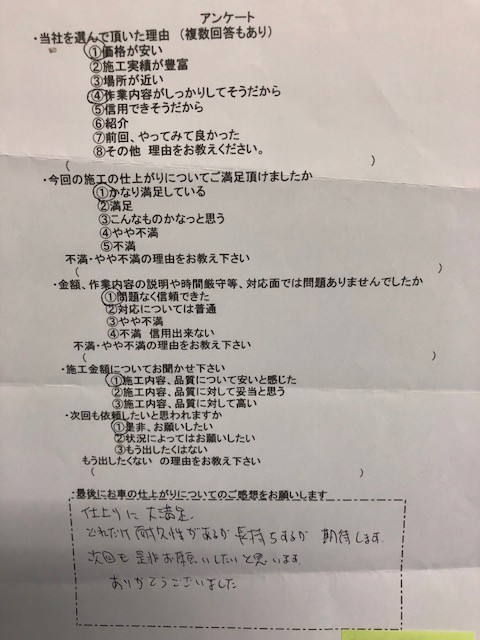 アンケート
・当社を選んで頂いた理由 (複数回答もあり)
①価格が安い
②施工実績が豊富
③場所が近い
④作業内容がしっかりしてそうだから
⑤信用できそうだから
⑥紹介
⑦前回、やってみて良かった
⑧その他 理由をお教えください。
( )
・今回の施工の仕上がりについてご満足頂けましたか
①かなり満足している
②満足
③こんなものかなっと思う
④やや不満
⑤不満
不満・やや不満の理由をお教え下さい
( )
・金額、作業内容の説明や時間厳守等、対応面では問題ありませんでしたか
①問題なく信頼できた
②対応については普通
③やや不満
④不満 信用出来ない
不満・やや不満の理由をお教え下さい
( )
・施工金額についてお聞かせ下さい
①施工内容、品質について安いと感じた
②施工内容、品質に対して妥当と思う
③施工内容、品質に対して高い
・次回も依頼したいと思われますか
①是非、お願いしたい
②状況によってはお願いしたい
③もう出したくはない
もう出したくない の理由をお教え下さい
( )
・最後にお車の仕上がりについてのご感想をお願いします
仕上りに 大満足。
どれだけ 耐久性があるか 長持ちするか 期待します。
次回も 是非お願いしたいと思います。
ありがとうございました